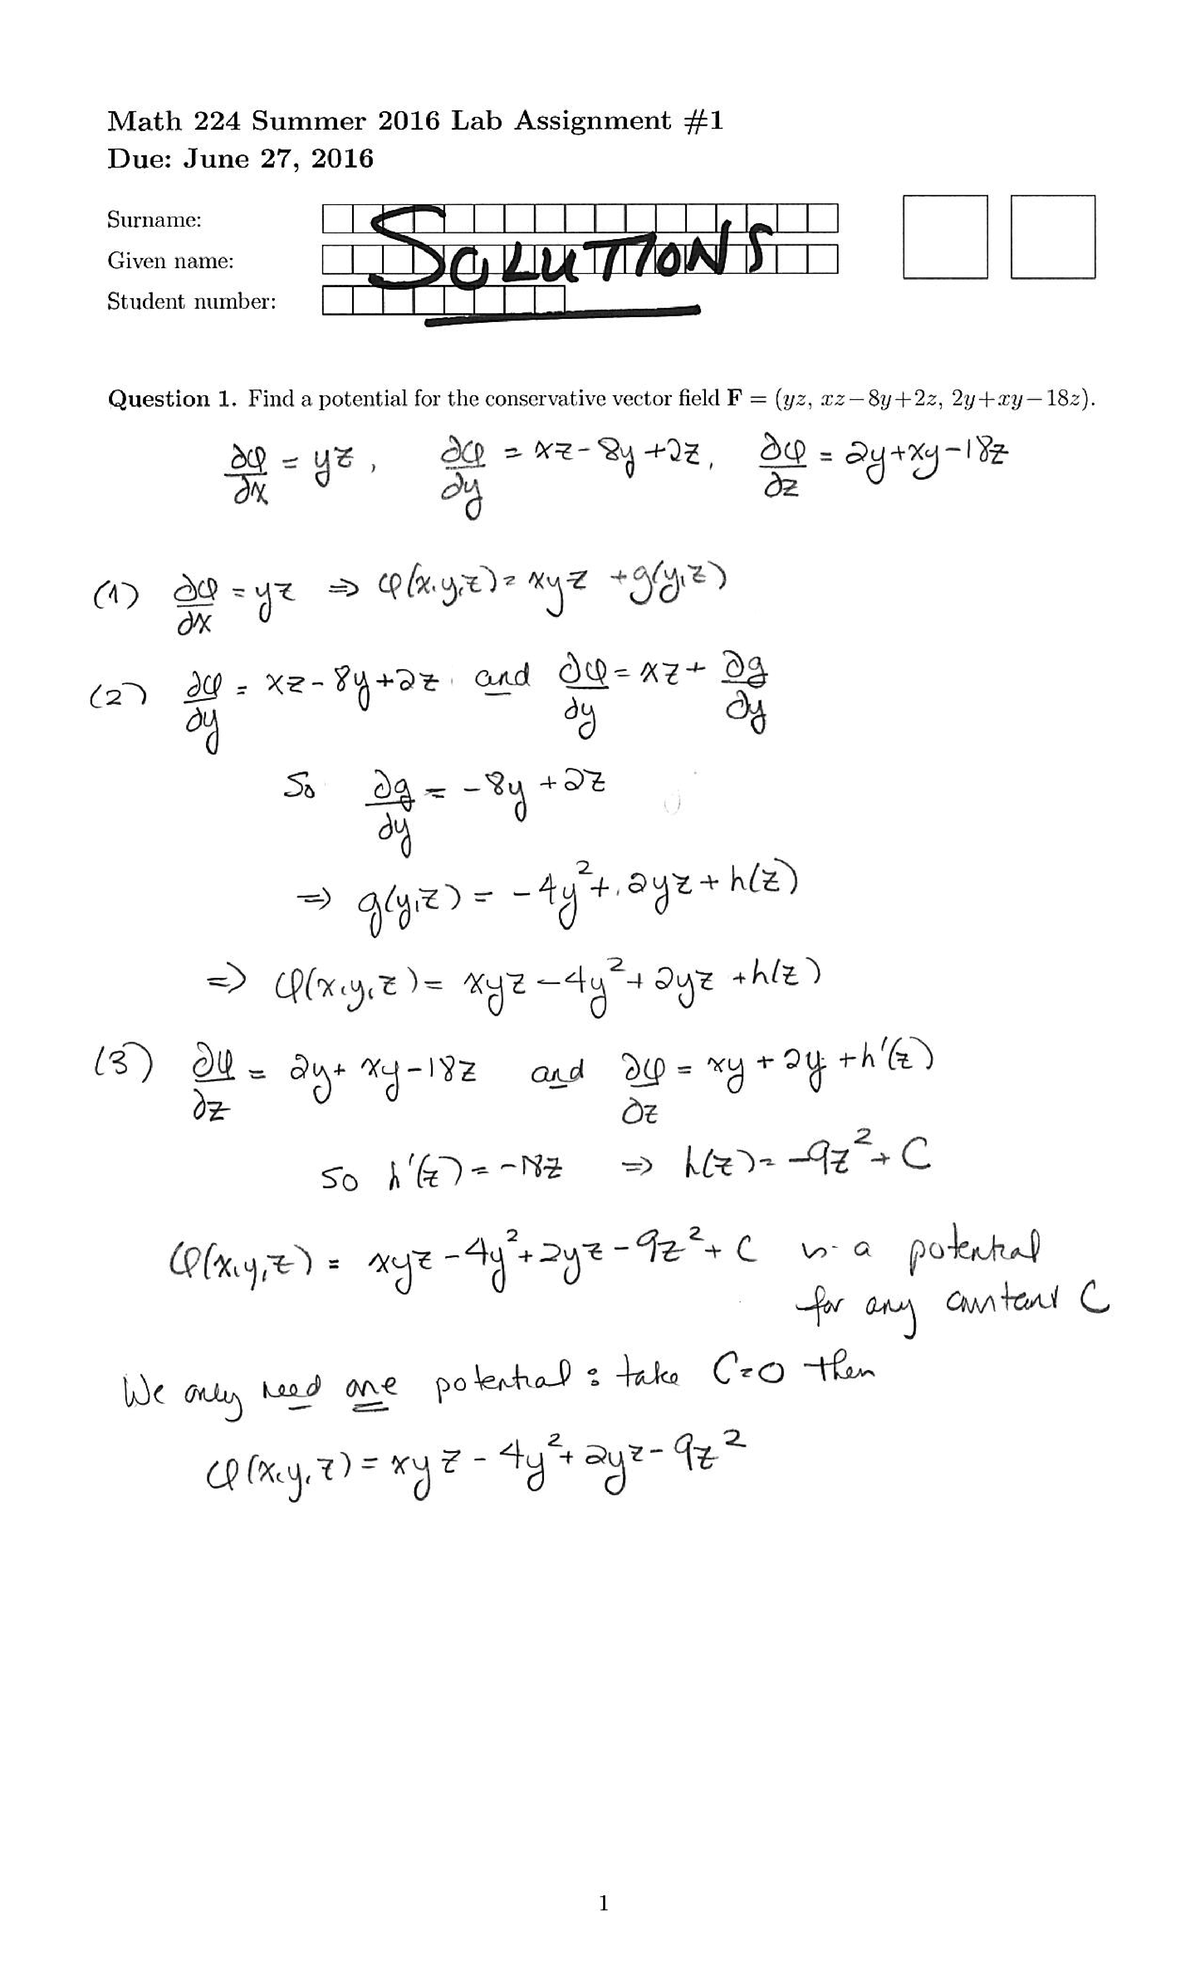 Math 224 Summer 2016 Lab Assignment #1
Due: June 27, 2016
Surname:
Given name:
Student number:
SOLUTIONS
Question 1. Find a potential for the conservative vector field F = (yz, xz−8y+2z, 2y+xy−18z).
∂φ/∂x = yz, ∂φ/∂y = xz-8y+2z, ∂φ/∂z = 2y+xy-18z
(1) ∂φ/∂x = yz ⇒ φ(x,y,z) = xyz + g(y,z)
(2) ∂φ/∂y = xz-8y+2z and ∂φ/∂y = xz + ∂g/∂y
So ∂g/∂y = -8y+2z
⇒ g(y,z) = -4y²+2yz+h(z)
⇒ φ(x,y,z) = xyz-4y²+2yz+h(z)
(3) ∂φ/∂z = 2y+xy-18z and ∂φ/∂z = xy+2y+h'(z)
So h'(z) = -18z ⇒ h(z) = -9z²+C
φ(x,y,z) = xyz-4y²+2yz-9z²+C is a potential
for any constant C
We only need one potential: take C=0 then
φ(x,y,z) = xyz-4y²+2yz-9z²
1